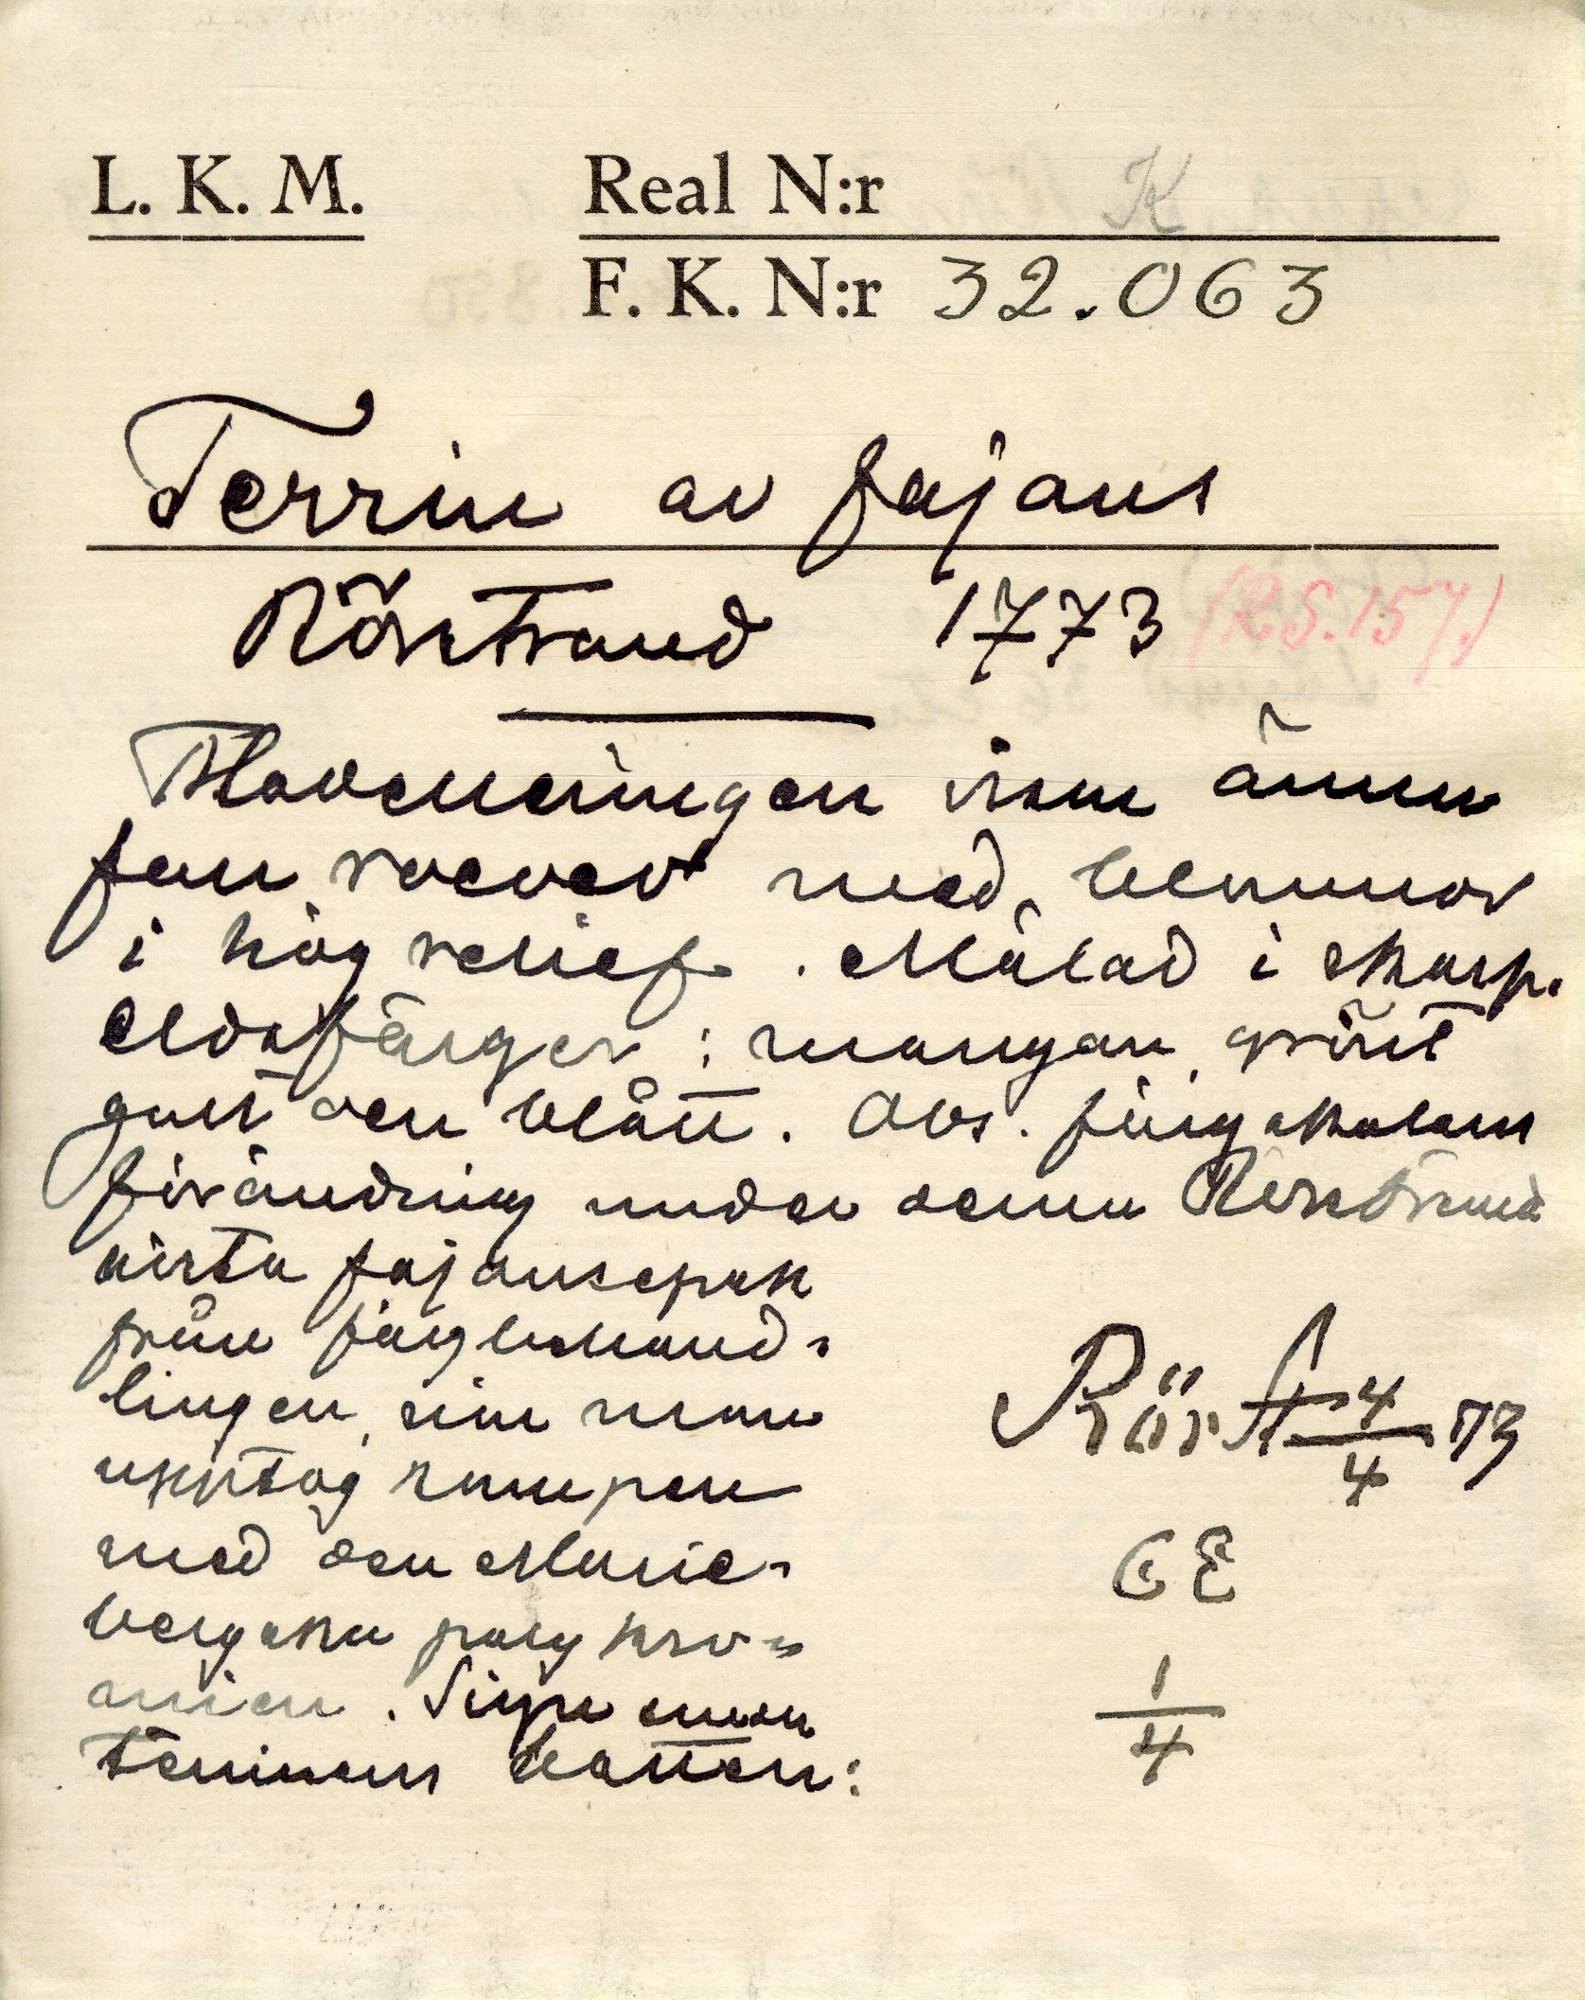 L. K. M.
Real N:r K
F. K. N:r 32.063
Terrin av fajans
Rörstrand 1773 (RS.157.)
Modelleringen som
med blommor
i hög relief. Målad i skarp-
eldsfärger: mangan, grönt
gult och blått. Obs. färgskalans
förändring under denna Rörstrands
sista fajansepok
från färgbehand-
lingen, som man
upptog kampen
med den Marie-
bergska polykro-
mien. Sign. under
terrinens botten:
Rörst 4/4 73
CE
1/4